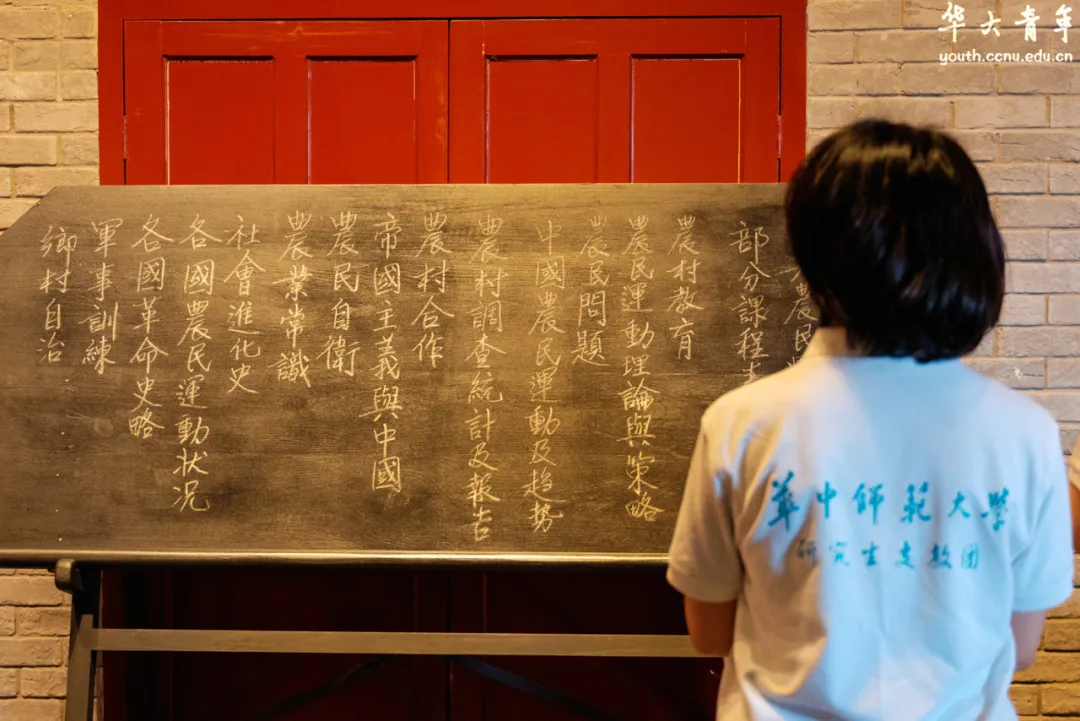 华大青年
youth.ccnu.edu.cn
農民
部分課程
農村教育
農民運動理論與策略
農民問題
中國農民運動及趨勢
農村調查統計及報告
農村合作
帝國主義與中國
農民自衛
農業常識
社會進化史
各國農民運動狀況
各國革命史略
軍事訓練
鄉村自治
華中師範大學
研究生支教团